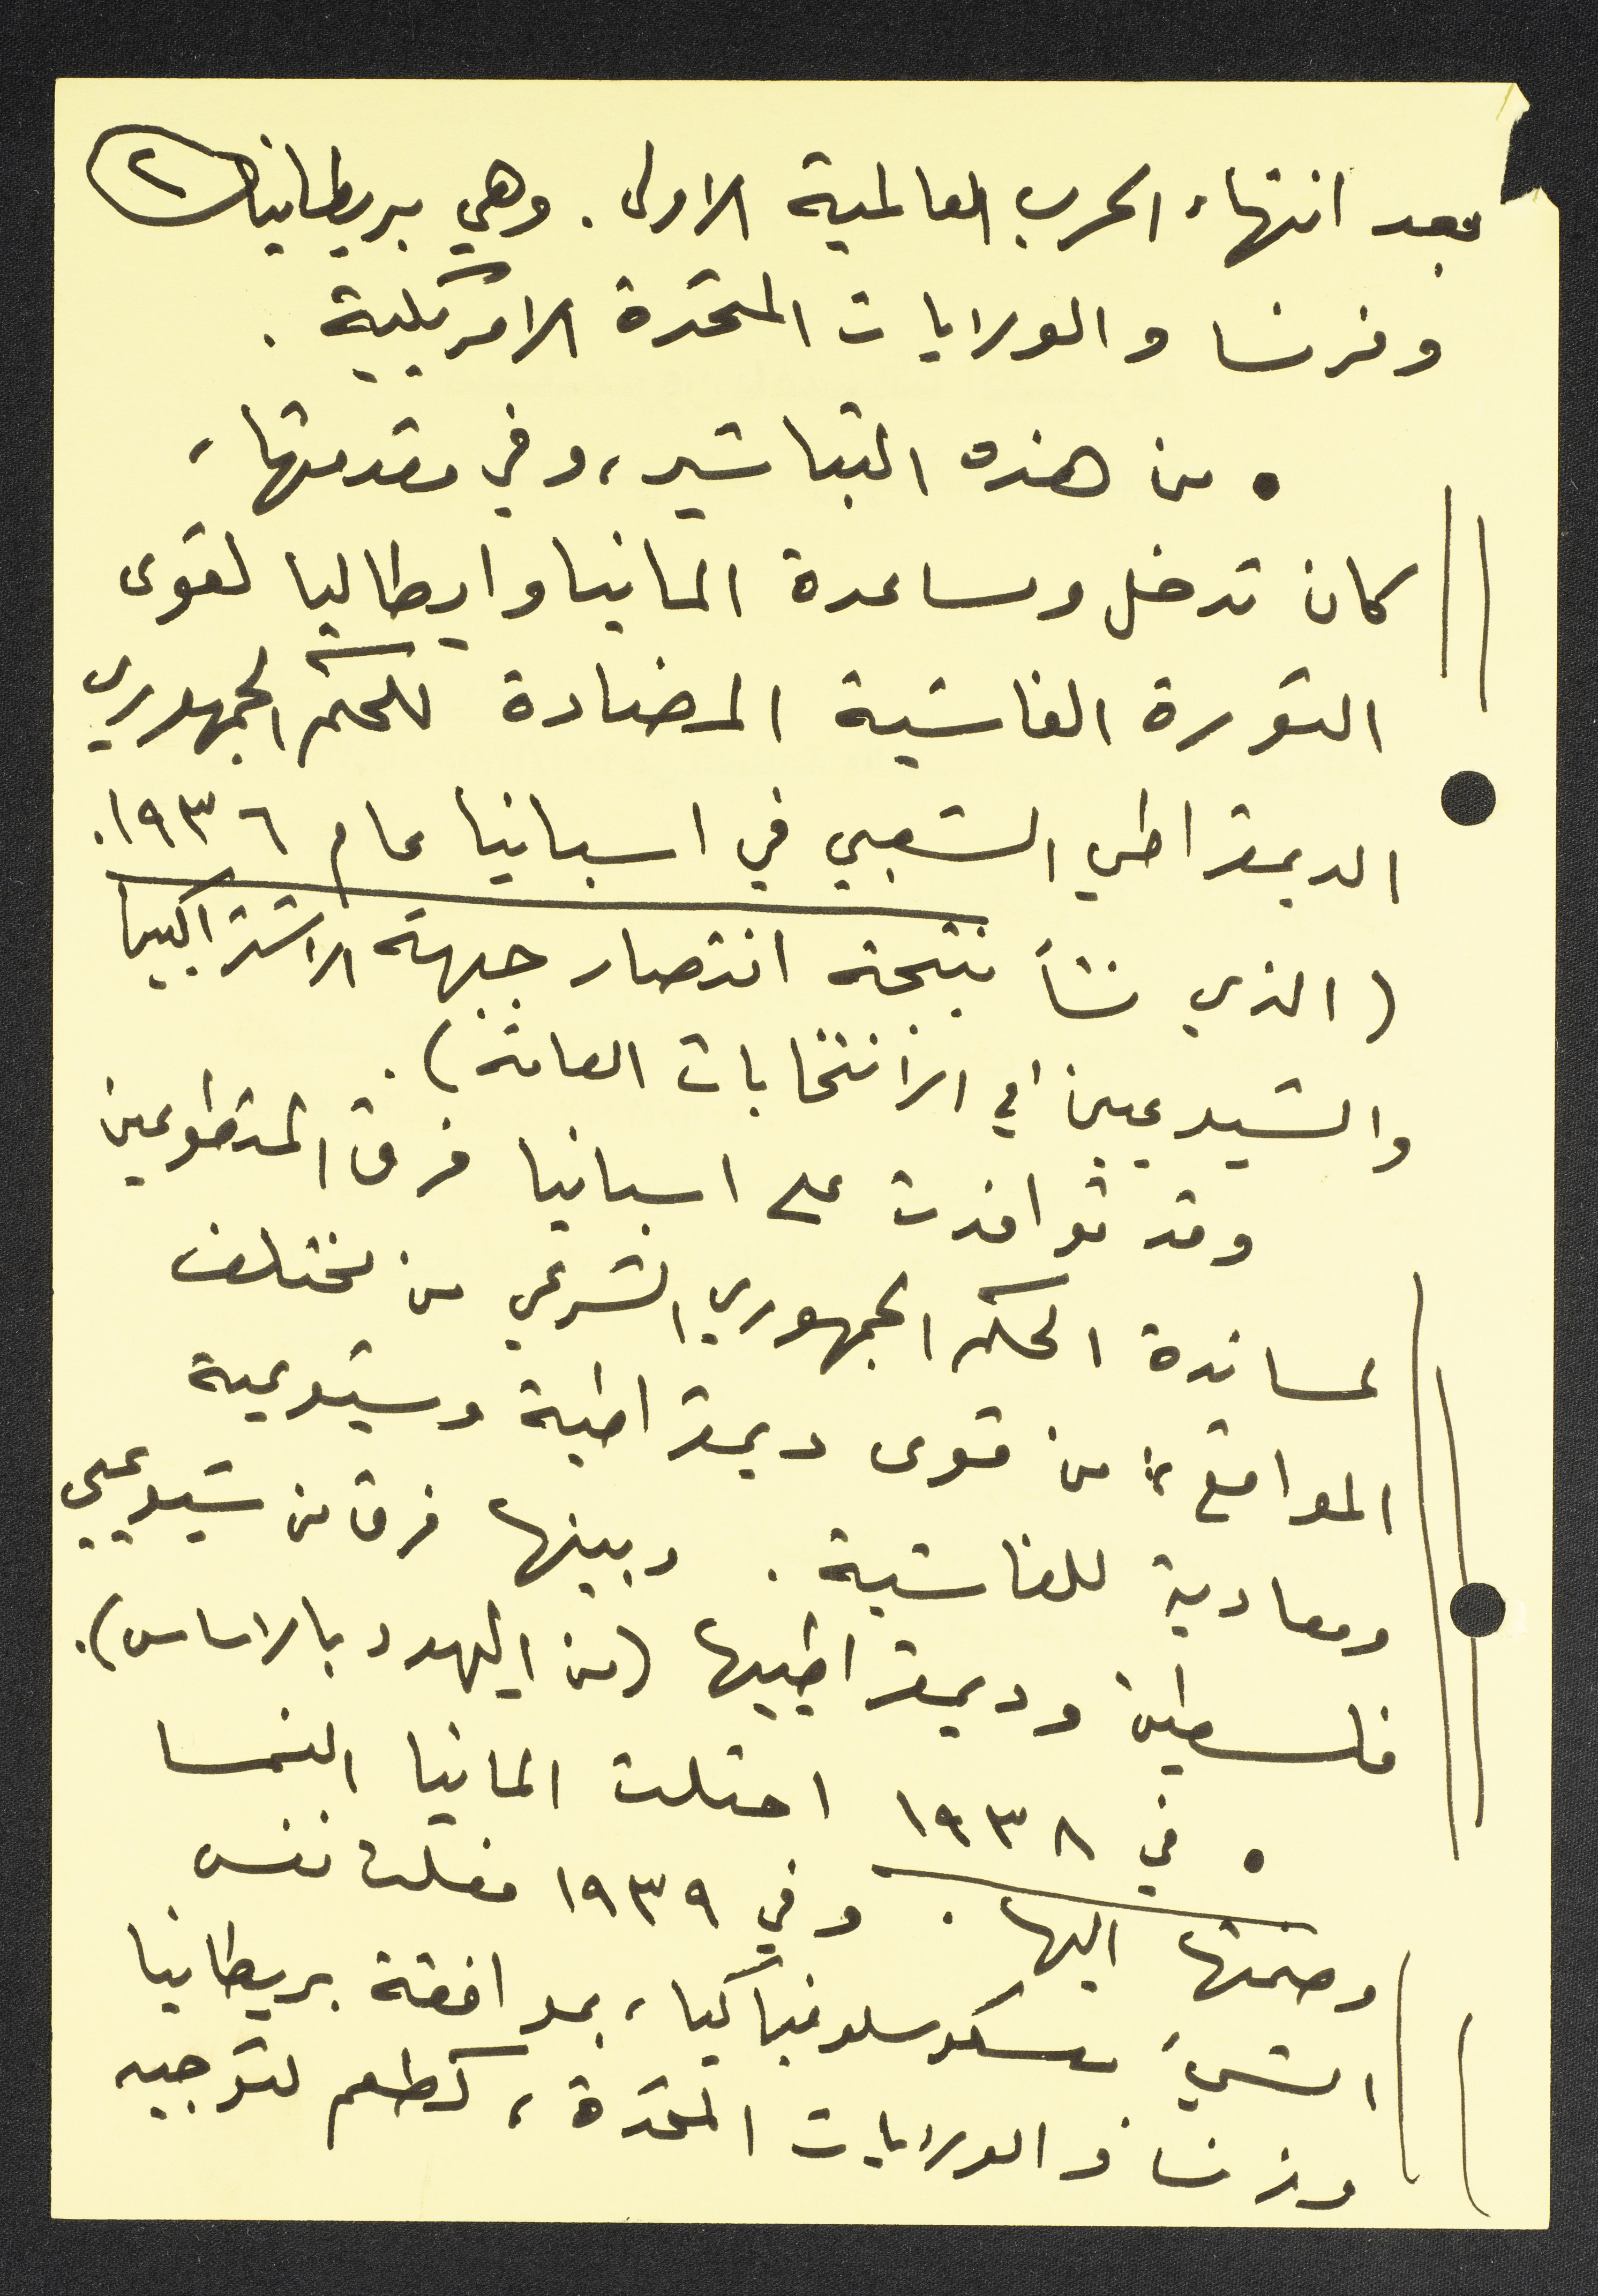 ٢
بعد انتهاء الحرب العالمية الاولى. وهي بريطانيا
وفرنسا والولايات المتحدة الامريكية.
• من هذه التباشير، وفي مقدمتها،
كان تدخل ومساعدة المانيا وايطاليا لقوى
الثورة الفاشية المضادة للحكم الجمهوري
الديمقراطي الشعبي في اسبانيا عام ١٩٣٦.
(الذي نشأ نتيجة انتصار جبهة الاشتراكيين
والشيوعيين في الانتخابات العامة).
وقد توافدت على اسبانيا فرق المتطوعين
لمساندة الحكم الجمهوري الشرعي من مختلف
المواقع، من قوى ديمقراطية وشيوعية
ومعادية للفاشية. وبينها فرق من شيوعيي
فلسطين وديمقراطييها (من اليهود بالاساس).
• في ١٩٣٨ احتلت المانيا النمسا
وضمتها اليها. وفي ١٩٣٩ فعلت نفس
الشيء بتشيكوسلوفاكيا، بموافقة بريطانيا
وفرنسا والولايات المتحدة، كطعم لتوجيه